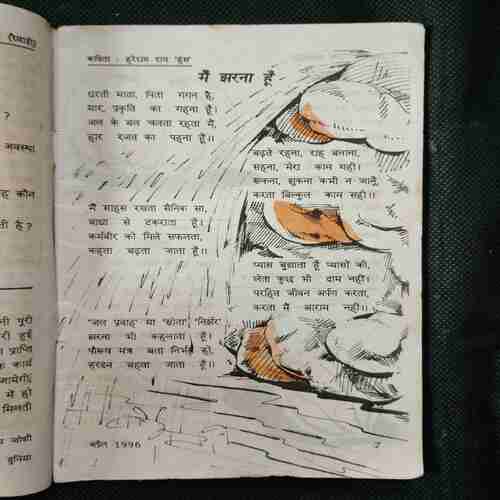 (स्थायी)
?
अवस्था
कौन
ती है ?
नी पूरी
री हुई
प्राप्ति
के कार्य
जायेगी,
में हो
मिलती
जोशी
दुनिया
कविता : हरेराम राय 'हंस'
मैं झरना हूँ
धरती माता, पिता गगन है,
यार, प्रकृति का गहना हूँ।
जल के बल चलता रहता मैं,
हार रजत का पहना हूँ।।
मैं साहस रखता सैनिक सा,
बाधा से टकराता हूँ।
कर्मवीर को मिले सफलता,
कहता बढ़ता जाता हूँ।।
'जल प्रवाह' या 'स्रोता' 'निर्झर'
झरना भी कहलाता हूँ।
पौरूष मंत्र बता निर्भय हो,
हरदम बहता जाता हूँ।।
बढ़ते रहना, राह बनाना,
सहना, मेरा काम यही।
रूकना, झुकना कभी न जानूँ,
करता बिल्कुल काम सही।।
प्यास बुझाता हूँ प्यासों की,
लेता कुछ भी दाम नहीं।
परहित जीवन अर्पण करता,
करता मैं आराम नहीं।।
1996
7